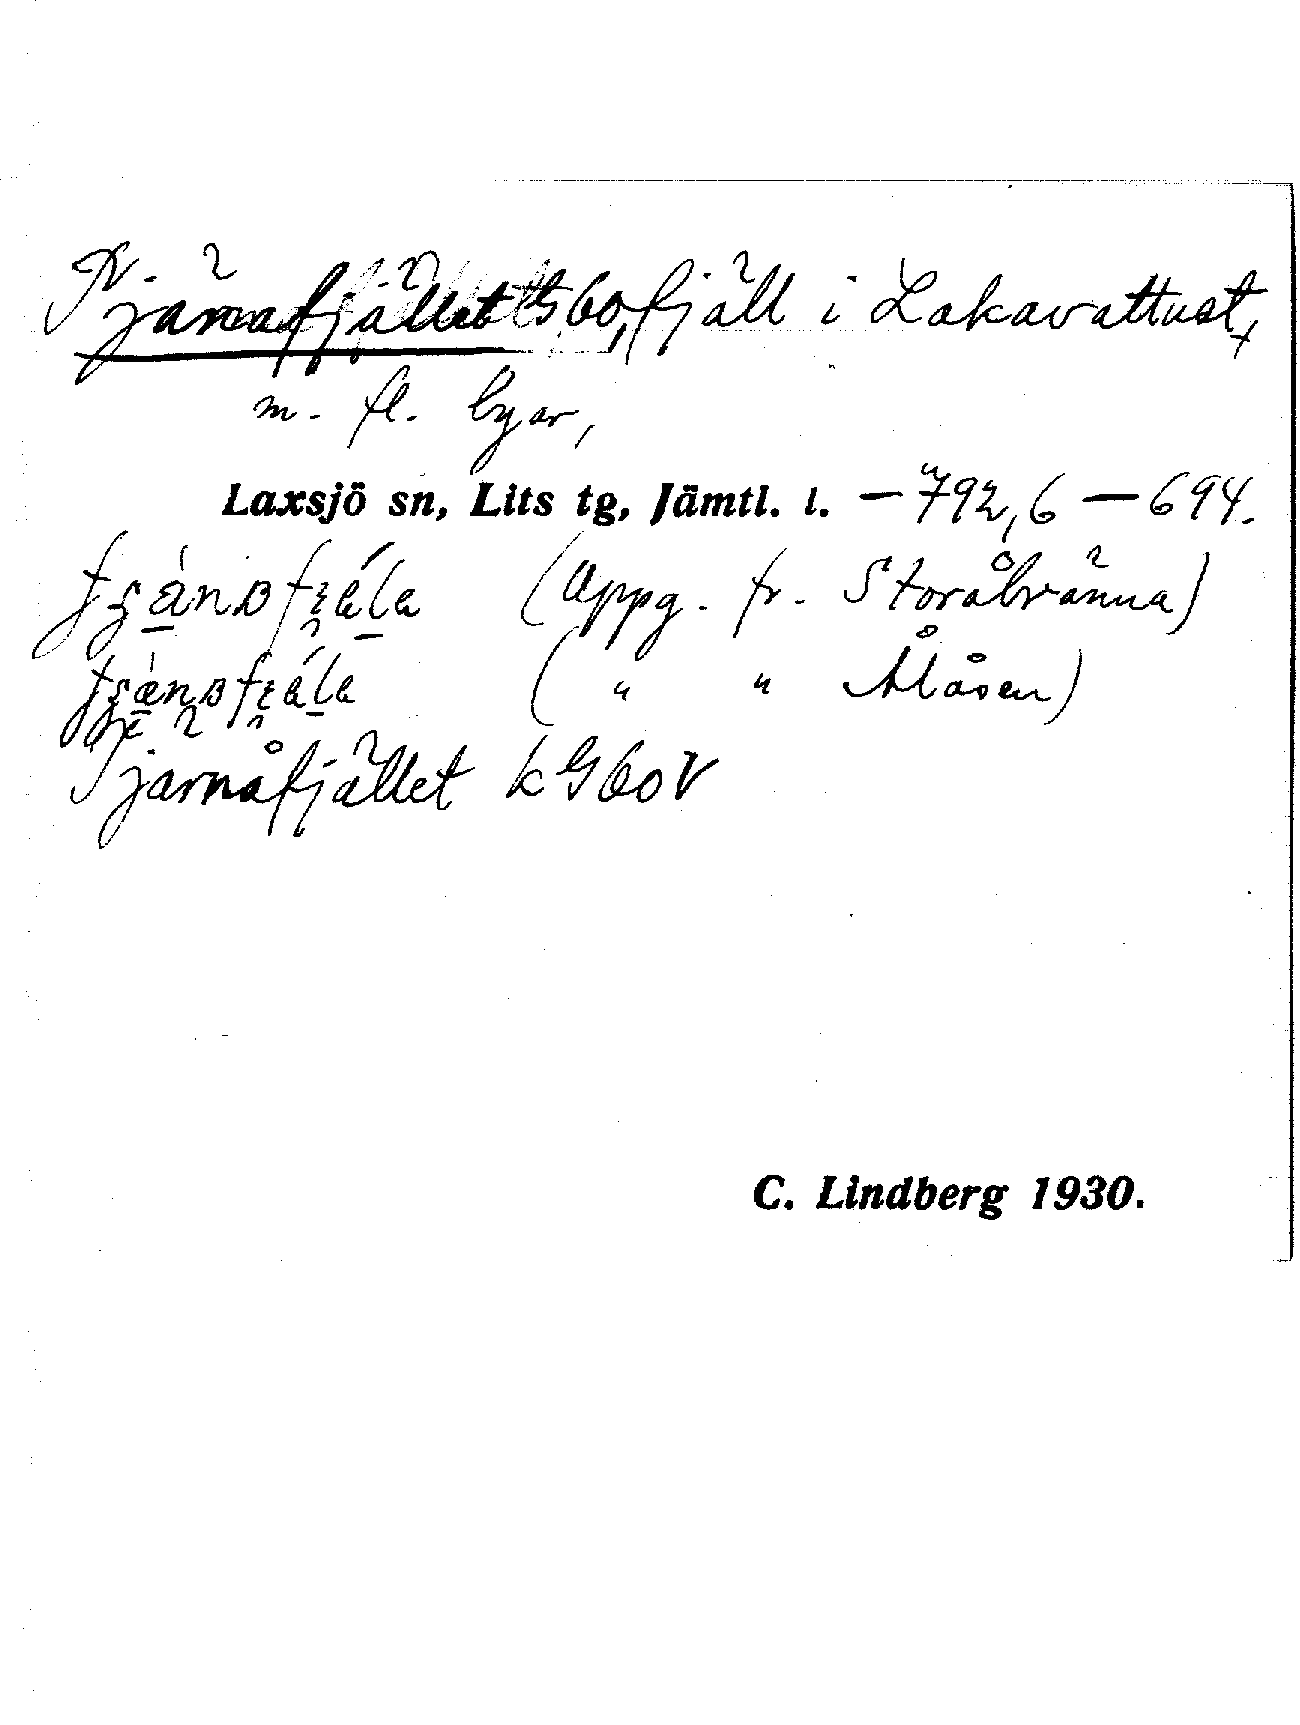 Tjärnåfjället G60, fjäll i Lakavattnet,
m. fl. byar,
Laxsjö sn, Lits tg, Jämtl. l. — 792,6 — 694.
(Uppg. fr. Storålvänna)
( " " Ålåsen)
Tjärnåfjället k G60V
C. Lindberg 1930.